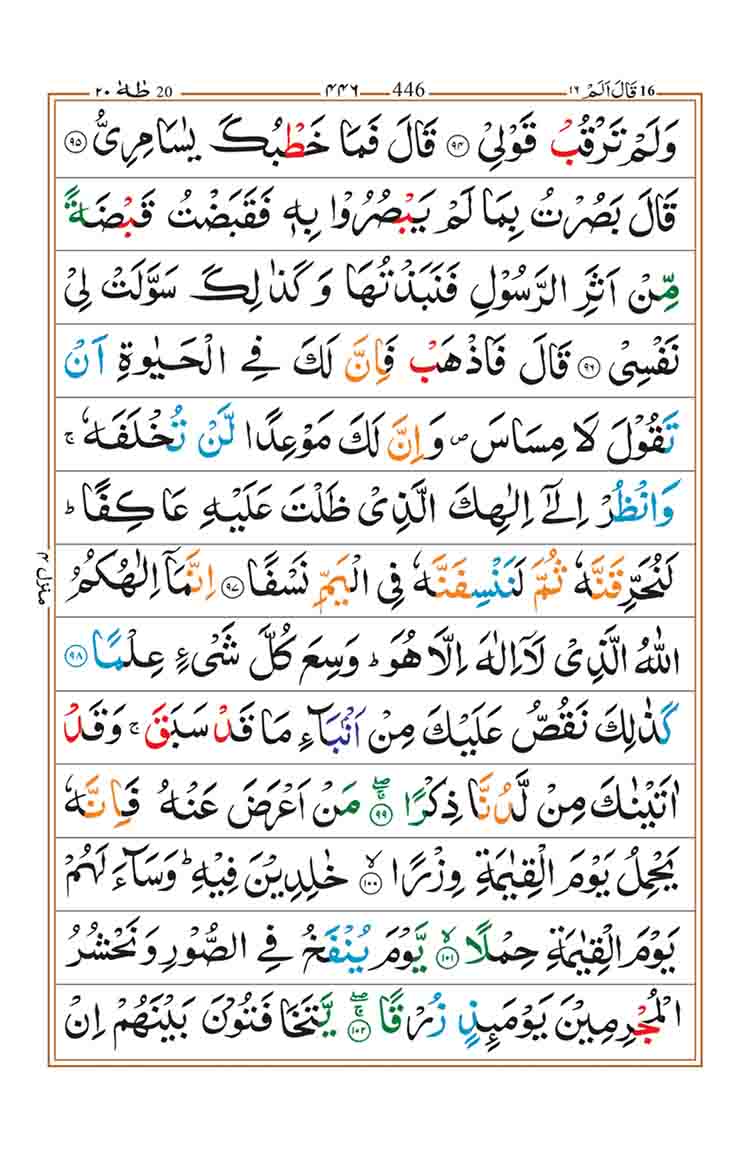 16 قَالَ اَلَمْ ۱۶ 446 ۴۴۶ 20 طٰهٰ ۲۰
وَلَمْ تَرْقُبْ قَوْلِیْ ۝۹۴ قَالَ فَمَا خَطْبُكَ یٰسَامِرِیُّ ۝۹۵
قَالَ بَصُرْتُ بِمَا لَمْ یَبْصُرُوْا بِهٖ فَقَبَضْتُ قَبْضَةً
مِّنْ اَثَرِ الرَّسُوْلِ فَنَبَذْتُهَا وَكَذٰلِكَ سَوَّلَتْ لِیْ
نَفْسِیْ ۝۹۶ قَالَ فَاذْهَبْ فَاِنَّ لَكَ فِی الْحَیٰوةِ اَنْ
تَقُوْلَ لَا مِسَاسَ ۪ وَاِنَّ لَكَ مَوْعِدًا لَّنْ تُخْلَفَهٗ ۚ
وَانْظُرْ اِلٰۤی اِلٰهِكَ الَّذِیْ ظَلْتَ عَلَیْهِ عَاكِفًا ؕ
لَنُحَرِّقَنَّهٗ ثُمَّ لَنَنْسِفَنَّهٗ فِی الْیَمِّ نَسْفًا ۝۹۷ اِنَّمَاۤ اِلٰهُكُمُ
اللّٰهُ الَّذِیْ لَاۤ اِلٰهَ اِلَّا هُوَ ؕ وَسِعَ كُلَّ شَیْءٍ عِلْمًا ۝۹۸
كَذٰلِكَ نَقُصُّ عَلَیْكَ مِنْ اَنْۢبَآءِ مَا قَدْ سَبَقَ ۚ وَقَدْ
اٰتَیْنٰكَ مِنْ لَّدُنَّا ذِكْرًا ۝۹۹ ۖۚ مَنْ اَعْرَضَ عَنْهُ فَاِنَّهٗ
یَحْمِلُ یَوْمَ الْقِیٰمَةِ وِزْرًا ۝۱۰۰ ۙ خٰلِدِیْنَ فِیْهِ ؕ وَسَآءَ لَهُمْ
یَوْمَ الْقِیٰمَةِ حِمْلًا ۝۱۰۱ ۙ یَّوْمَ یُنْفَخُ فِی الصُّوْرِ وَنَحْشُرُ
الْمُجْرِمِیْنَ یَوْمَىِٕذٍ زُرْقًا ۝۱۰۲ ۖۚ یَّتَخَافَتُوْنَ بَیْنَهُمْ اِنْ
منزل ۴